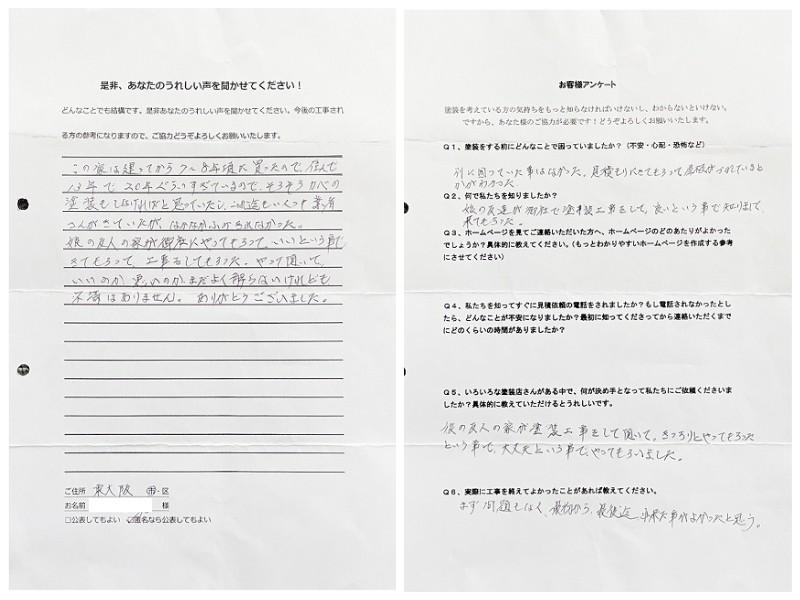 是非、あなたのうれしい声を聞かせてください！
どんなことでも結構です。是非あなたのうれしい声を聞かせてください。今後の工事され
る方の参考になりますので、ご協力どうぞよろしくお願いいたします。
この家は建ってから7〜8年頃で買ったので、住んで
13年で20年ぐらいすぎているので、そろそろカベの
塗装もしなければと思っていたし、この近もいくつか業者
さんがきていたが、なかなかふみきれなかった。
娘の友人の家が御社にやってもらって、いいという事
きてもらって、工事をしてもらった。やって頂いて、
いいのか悪いのか、まだよく解らないけれども
不満はありません。ありがとうございました。
ご住所 東大阪 市・区
お名前 様
□公表してもよい ☑匿名なら公表してもよい
お客様アンケート
塗装を考えている方の気持ちをもっと知らなければいけないし、わからないといけない。
ですから、あなた様のご協力が必要です！どうぞよろしくお願いいたします。
Ｑ１、塗装をする前にどんなことで困っていましたか？（不安・心配・恐怖など）
別に困っていた事はなかった。見積もりにきてもらって屋根が
かがわかった。
Ｑ２、何で私たちを知りましたか？
娘の友達が御社で塗装工事をして、良いという事で知りまして、
来てもらった。
Ｑ３、ホームページを見てご連絡いただいた方へ、ホームページのどのあたりがよかった
でしょうか？具体的に教えてください。（もっとわかりやすいホームページを作成する参考
にさせてください）
Ｑ４、私たちを知ってすぐに見積依頼の電話をされましたか？もし電話されなかったとし
たら、どんなことが不安になりましたか？最初に知ってくださってから連絡いただくまで
にどのくらいの時間がありましたか？
Ｑ５、いろいろな塗装店さんがある中で、何が決め手となって私たちにご依頼くださいま
したか？具体的に教えていただけるとうれしいです。
娘の友人の家が塗装工事をして頂いて、きっちりとやってもらった
という事で、大丈夫という事で、やってもらいました。
Ｑ６、実際に工事を終えてよかったことがあれば教えてください。
まず問題もなく、最初から、最後迄、出来た事がよかったと思う。